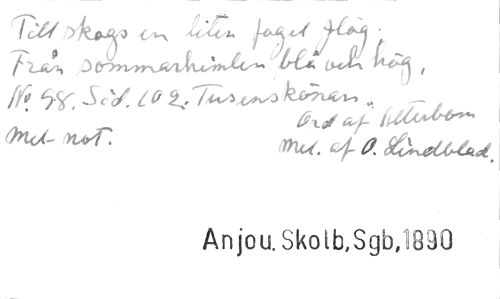 Till skogs en liten fogel flög,
Från sommarhimlen blå och hög,
No 98. Sid. 102. Tusenskönan.
Ord af Atterbom
Mel- not.
Mel. af O. Lindblad.
Anjou. Skolb, Sgb, 1890